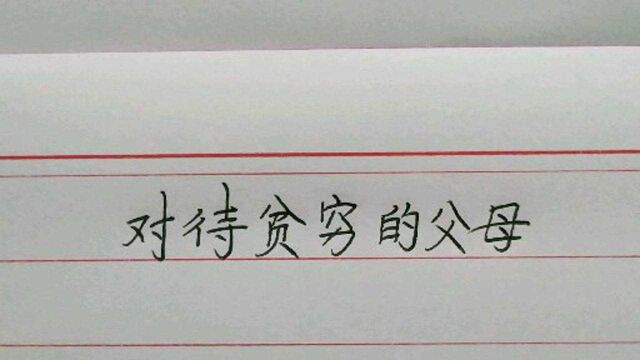 对待贫穷的父母